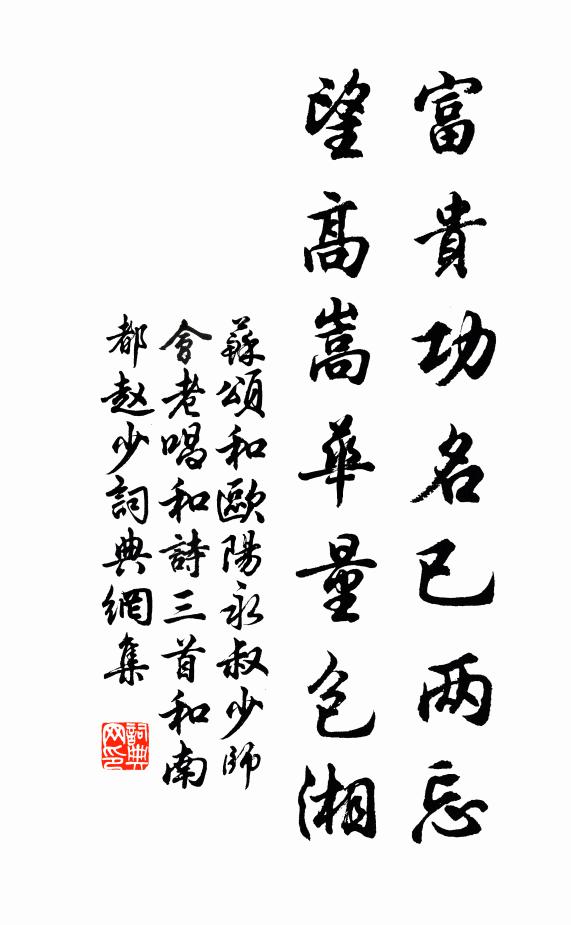 富貴功名已两忘
望高嵩華量包湘
蘇頌和歐陽永叔少師
會老唱和詩三首和南
都赵少詞典網集
詞典网印